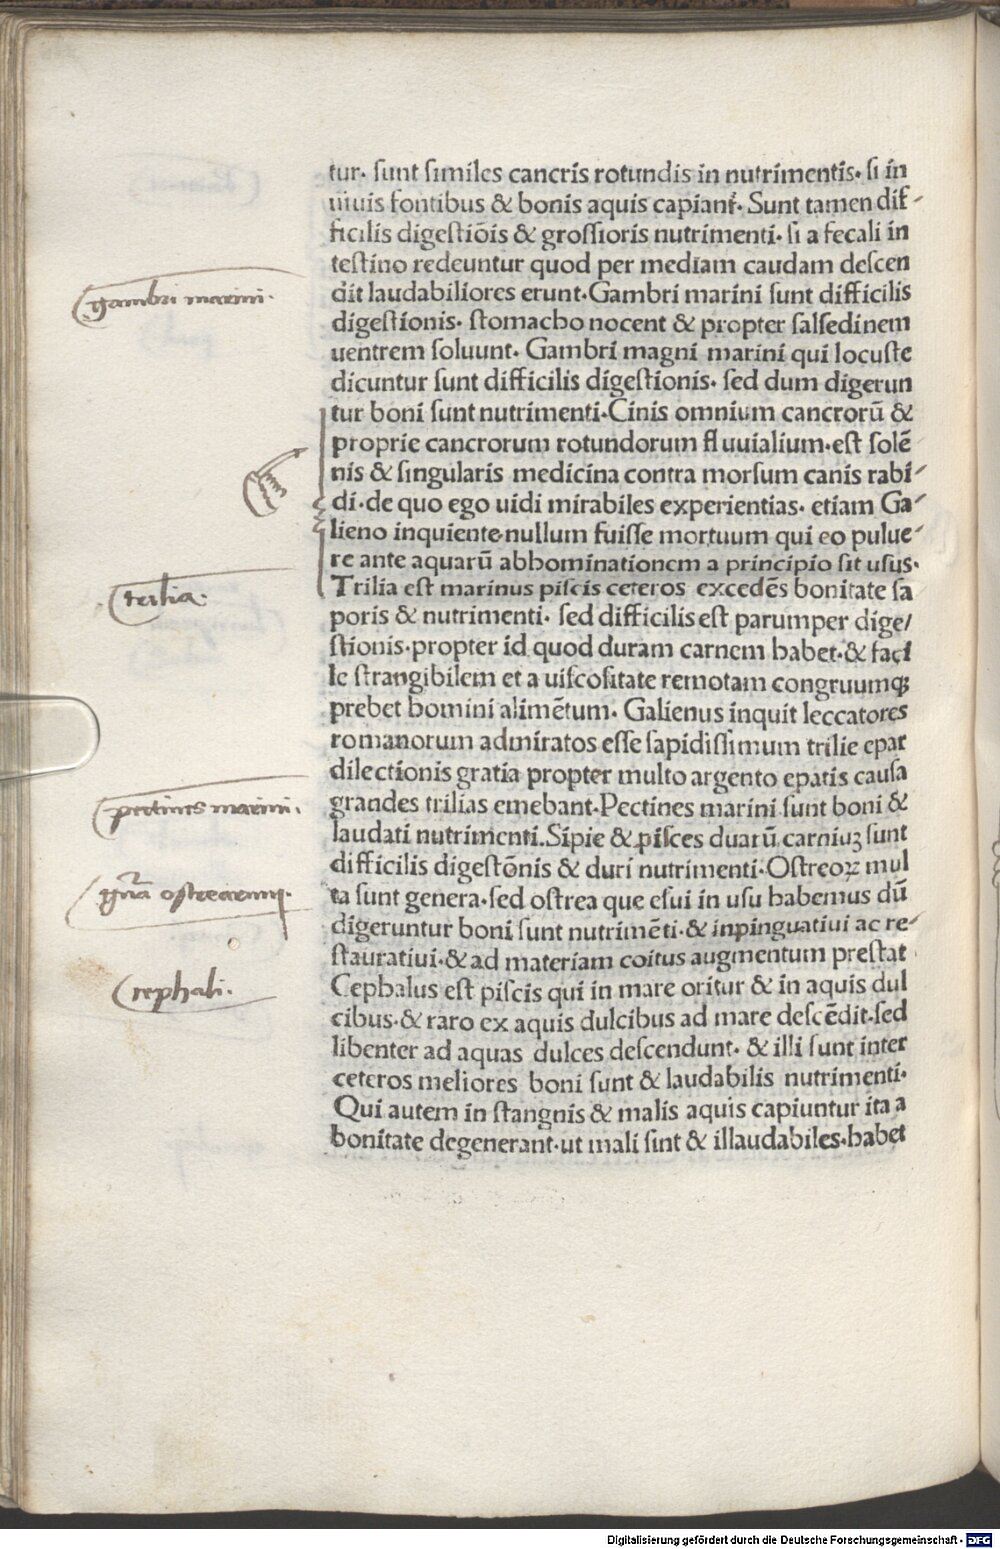 tur· sunt similes cancris rotundis in nutrimentis· si in
uiuis fontibus & bonis aquis capiant̄· Sunt tamen dif-
ficilis digestiōis & grossioris nutrimenti· si a fecali in
testino redeuntur quod per mediam caudam descen
gambri marini·
dit laudabiliores erunt·Gambri marini sunt difficilis
digestionis· stomacho nocent & propter salsedinem
uentrem soluunt· Gambri magni marini qui locuste
dicuntur sunt difficilis digestionis· sed dum digerun
tur boni sunt nutrimenti·Cinis omnium cancrorū &
proprie cancrorum rotundorum fluuialium·est solē
nis & singularis medicina contra morsum canis rabi-
di·de quo ego uidi mirabiles experientias· etiam Ga-
lieno inquiente·nullum fuisse mortuum qui eo pulue-
re ante aquarū abhominationem a principio sit usus·
trilia·
Trilia est marinus piscis ceteros excedēs bonitate sa
poris & nutrimenti· sed difficilis est parumper dige/
stionis·propter id quod duram carnem habet·& faci
le strangibilem et a uiscositate remotam congruumqꝫ
prebet homini alimētum· Galienus inquit leccatores
romanorum admiratos esse sapidissimum trilie epar
dilectionis gratia propter multo argento epatis causa
pectines marini·
grandes trilias emebant·Pectines marini sunt boni &
laudati nutrimenti.Sipie & pisces duarū carniuꝫ sunt
difficilis digestōnis & duri nutrimenti·Ostreoꝝ mul
gn̄a ostrearum·
ta sunt genera·sed ostrea que esui in usu habemus dū
digeruntur boni sunt nutrimēti·& inpinguatiui ac re-
stauratiui·& ad materiam coitus augmentum prestat
cephali·
Cephalus est piscis qui in mare oritur & in aquis dul
cibus·& raro ex aquis dulcibus ad mare descēdit·sed
libenter ad aquas dulces descendunt· & illi sunt inter
ceteros meliores boni sunt & laudabilis nutrimenti·
Qui autem in stangnis & malis aquis capiuntur ita a
bonitate degenerant·ut mali sint & illaudabiles·habet
Digitalisierung gefördert durch die Deutsche Forschungsgemeinschaft - DFG